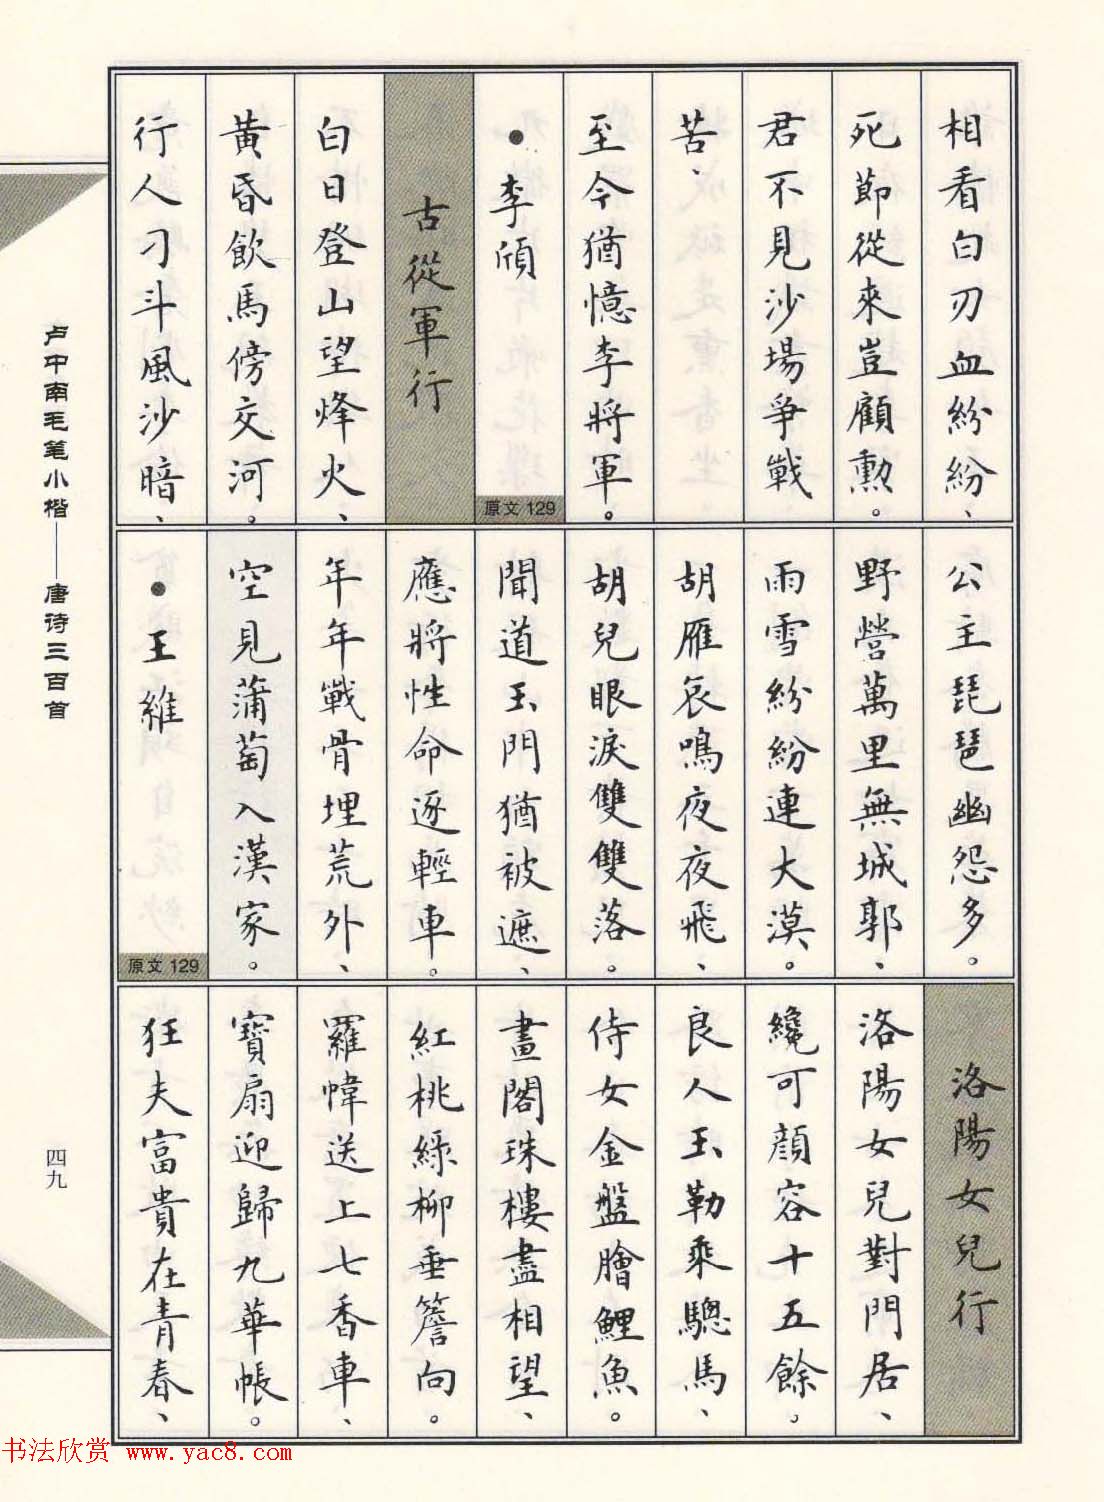 相看白刃血紛紛、
死節從來豈顧勲。
君不見沙場爭戰
苦、
至今猶憶李將軍。
•李頎
原文 129
古從軍行
白日登山望烽火、
黃昏飲馬傍交河。
行人刁斗風沙暗、
公主琵琶幽怨多。
野營萬里無城郭、
雨雪紛紛連大漠。
胡雁哀鳴夜夜飛、
胡兒眼淚雙雙落。
聞道玉門猶被遮、
應將性命逐輕車。
年年戰骨埋荒外、
空見蒲萄入漢家。
•王維
原文 129
洛陽女兒行
洛陽女兒對門居、
纔可顔容十五餘。
良人玉勒乘驄馬、
侍女金盤膾鯉魚。
畫閣珠樓盡相望、
紅桃綠柳垂簷向。
羅幃送上七香車、
寶扇迎歸九華帳。
狂夫富貴在青春、
卢中南毛笔小楷——唐诗三百首
四九
书法欣赏 www.yac8.com